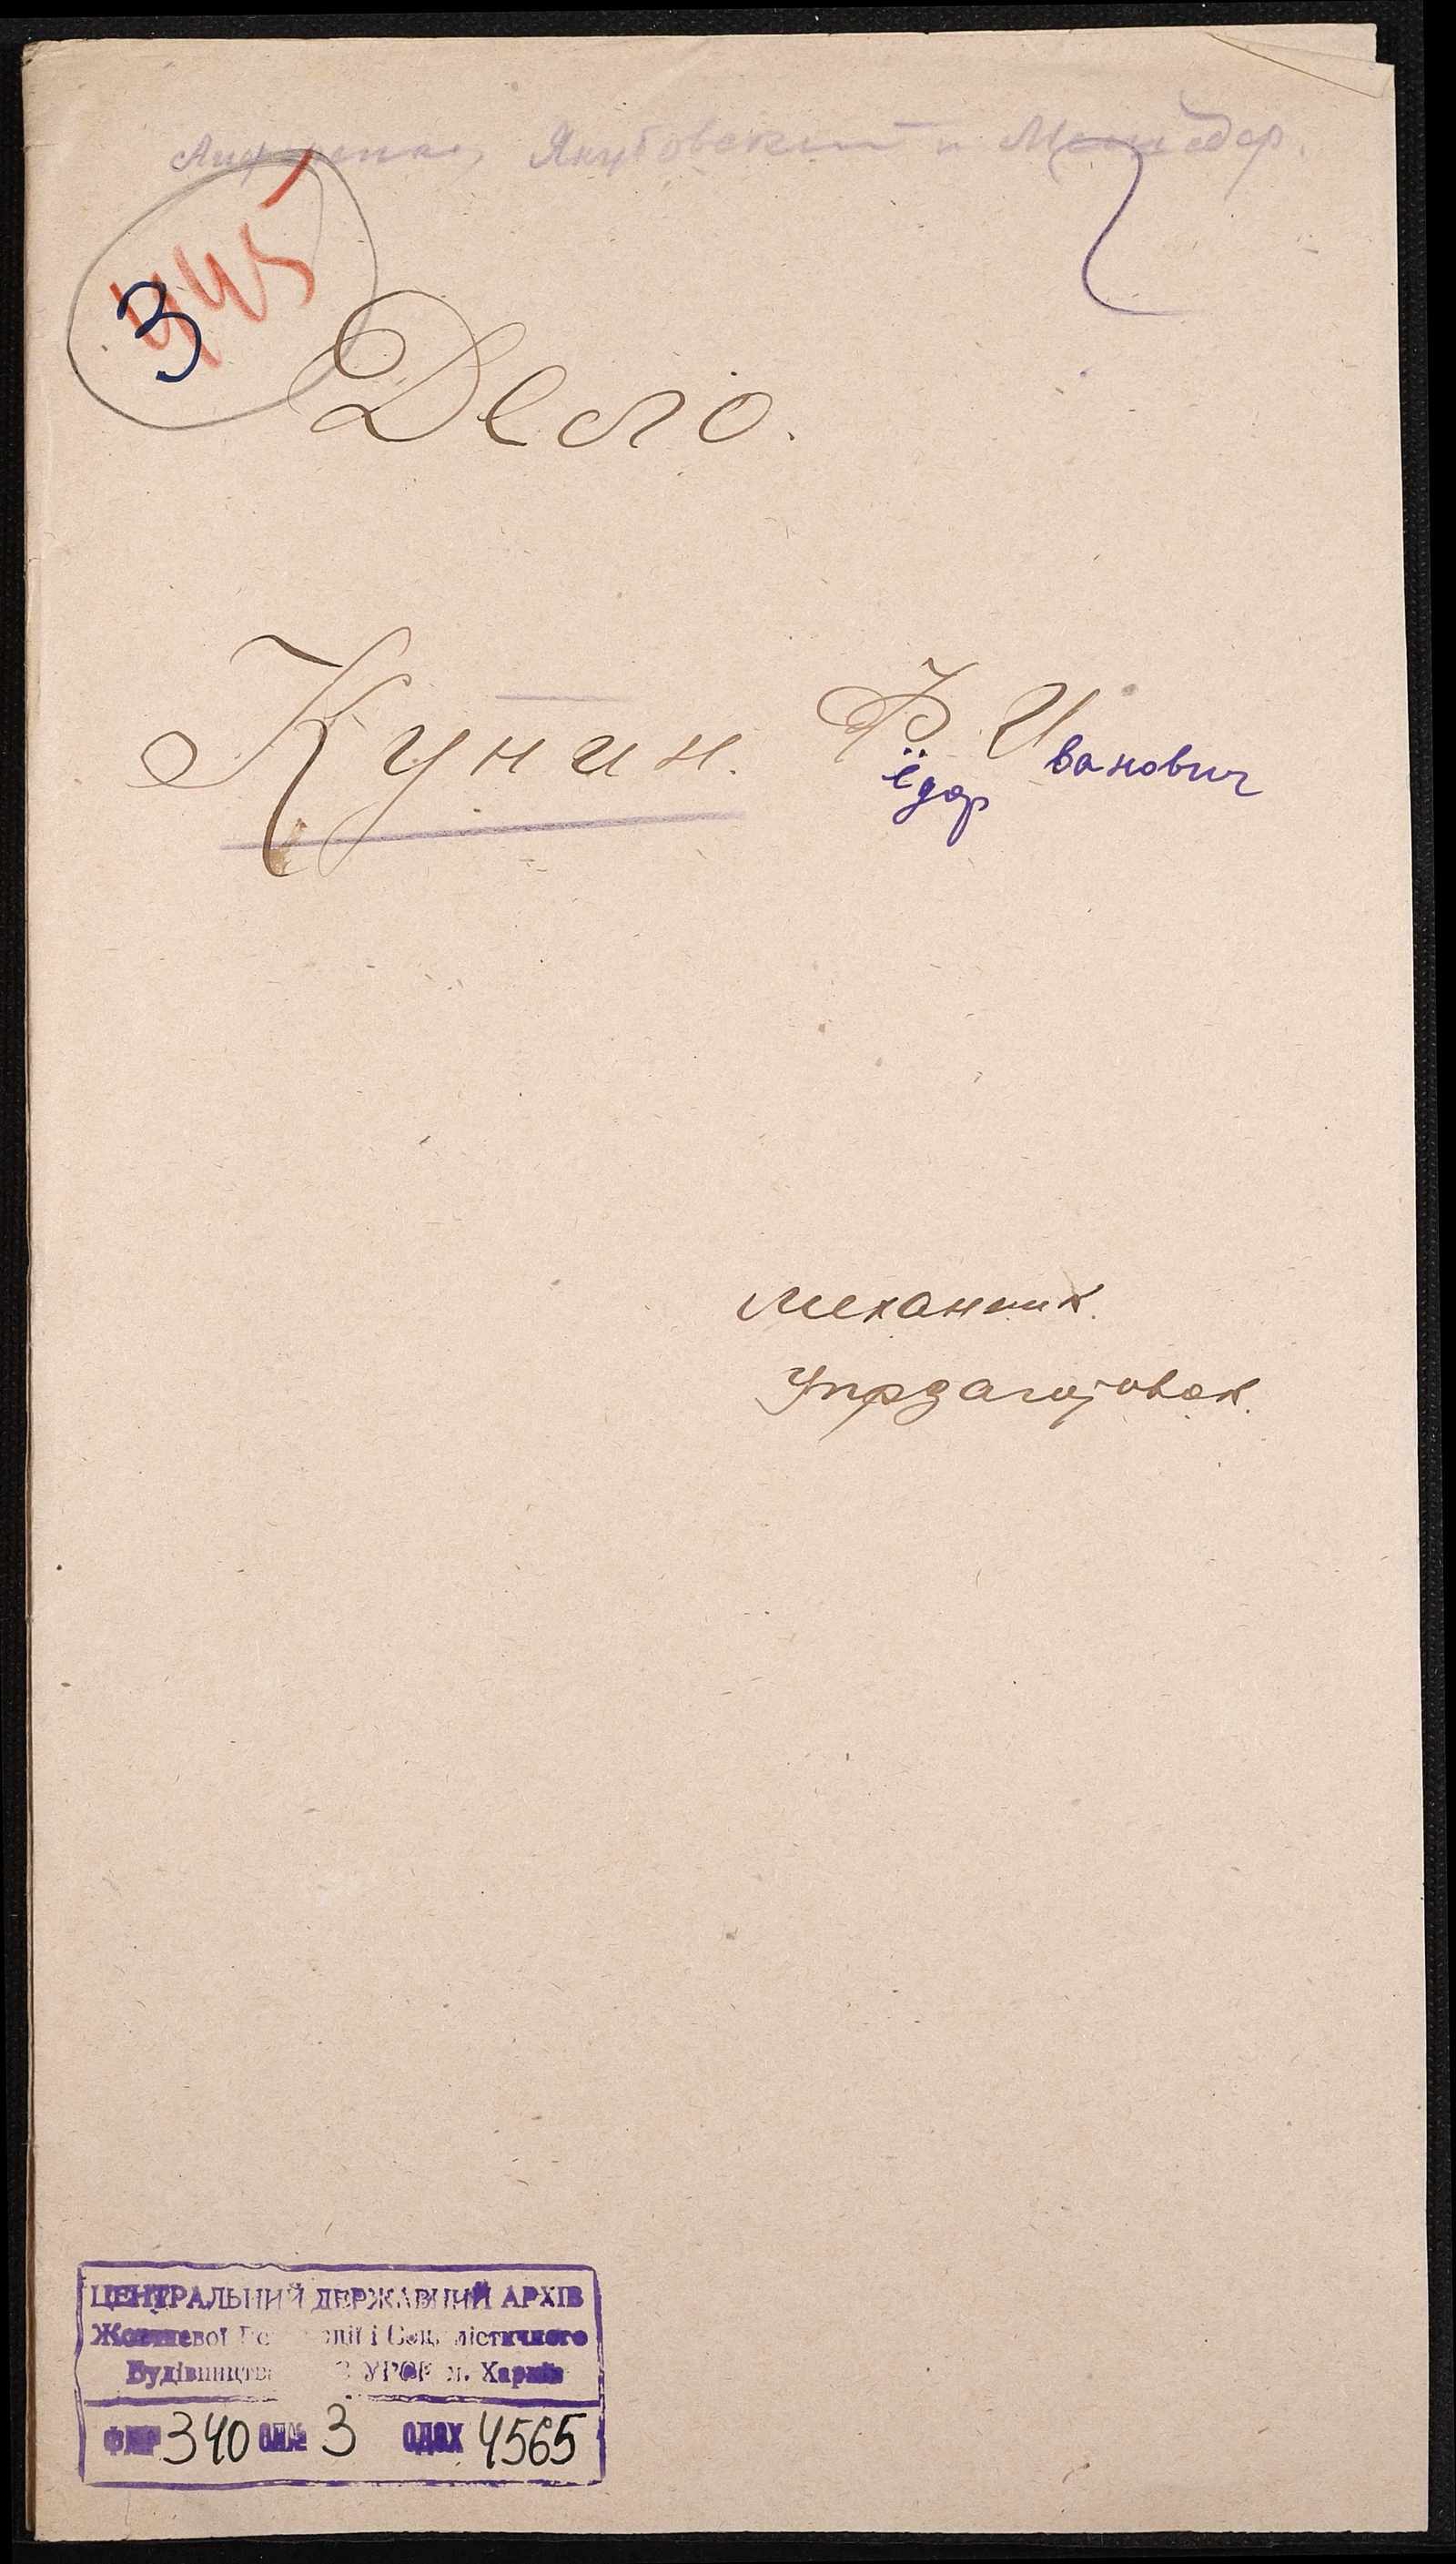 Якубовский и
445
3
Дело.
Кунин. Фёдор Иванович
Механик.
Упрзаготовок.
ЦЕНТРАЛЬНИЙ ДЕРЖАВНИЙ АРХІВ
Жовтневої і Соціалістичного
Будівництва УРСР м. Харків
ФНР 340 ОП№ 3 ОДЗХ 4565